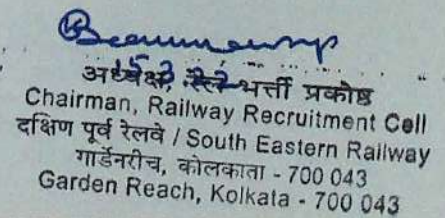 अध्यक्ष, रेलवे भर्ती प्रकोष्ठ
Chairman, Railway Recruitment Cell
दक्षिण पूर्व रेलवे / South Eastern Railway
गार्डेनरीच, कोलकाता - 700 043
Garden Reach, Kolkata - 700 043